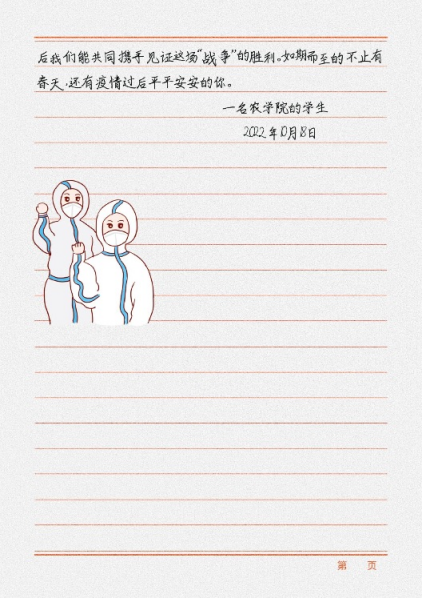 后我们能共同携手见证这场“战争”的胜利。如期而至的不止有
春天，还有疫情过后平平安安的你。
一名农学院的学生
2022年10月18日
第 页